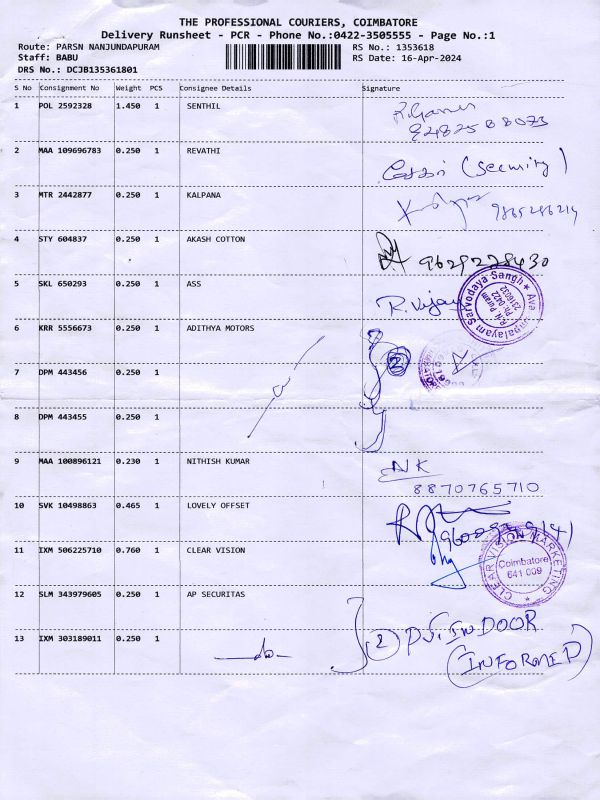 THE PROFESSIONAL COURIERS, COIMBATORE
Delivery Runsheet - PCR - Phone No.:0422-3505555 - Page No.:1
Route: PARSN NANJUNDAPURAM
RS No.: 1353618
Staff: BABU
RS Date: 16-Apr-2024
DRS No.: DCJB135361801
S No Consignment No Weight PCS Consignee Details Signature
1 POL 2592328 1.450 1 SENTHIL
2 MAA 109696783 0.250 1 REVATHI
(Security)
3 MTR 2442877 0.250 1 KALPANA
9865286214
4 STY 604837 0.250 1 AKASH COTTON
9629228430
5 SKL 650293 0.250 1 ASS R. Vijay
Sarvodaya Sangh
R.N. Puram
Ph: 0422
2316032
6 KRR 5556673 0.250 1 ADITHYA MOTORS
2
7 DPM 443456 0.250 1
8 DPM 443455 0.250 1
9 MAA 100896121 0.230 1 NITHISH KUMAR NK
8870765710
10 SVK 10498863 0.465 1 LOVELY OFFSET
11 IXM 506225710 0.760 1 CLEAR VISION
CLEAR VISION MARKETING
Coimbatore
641 009
12 SLM 343979605 0.250 1 AP SECURITAS
2 DOOR
13 IXM 303189011 0.250 1
(INFORMED)